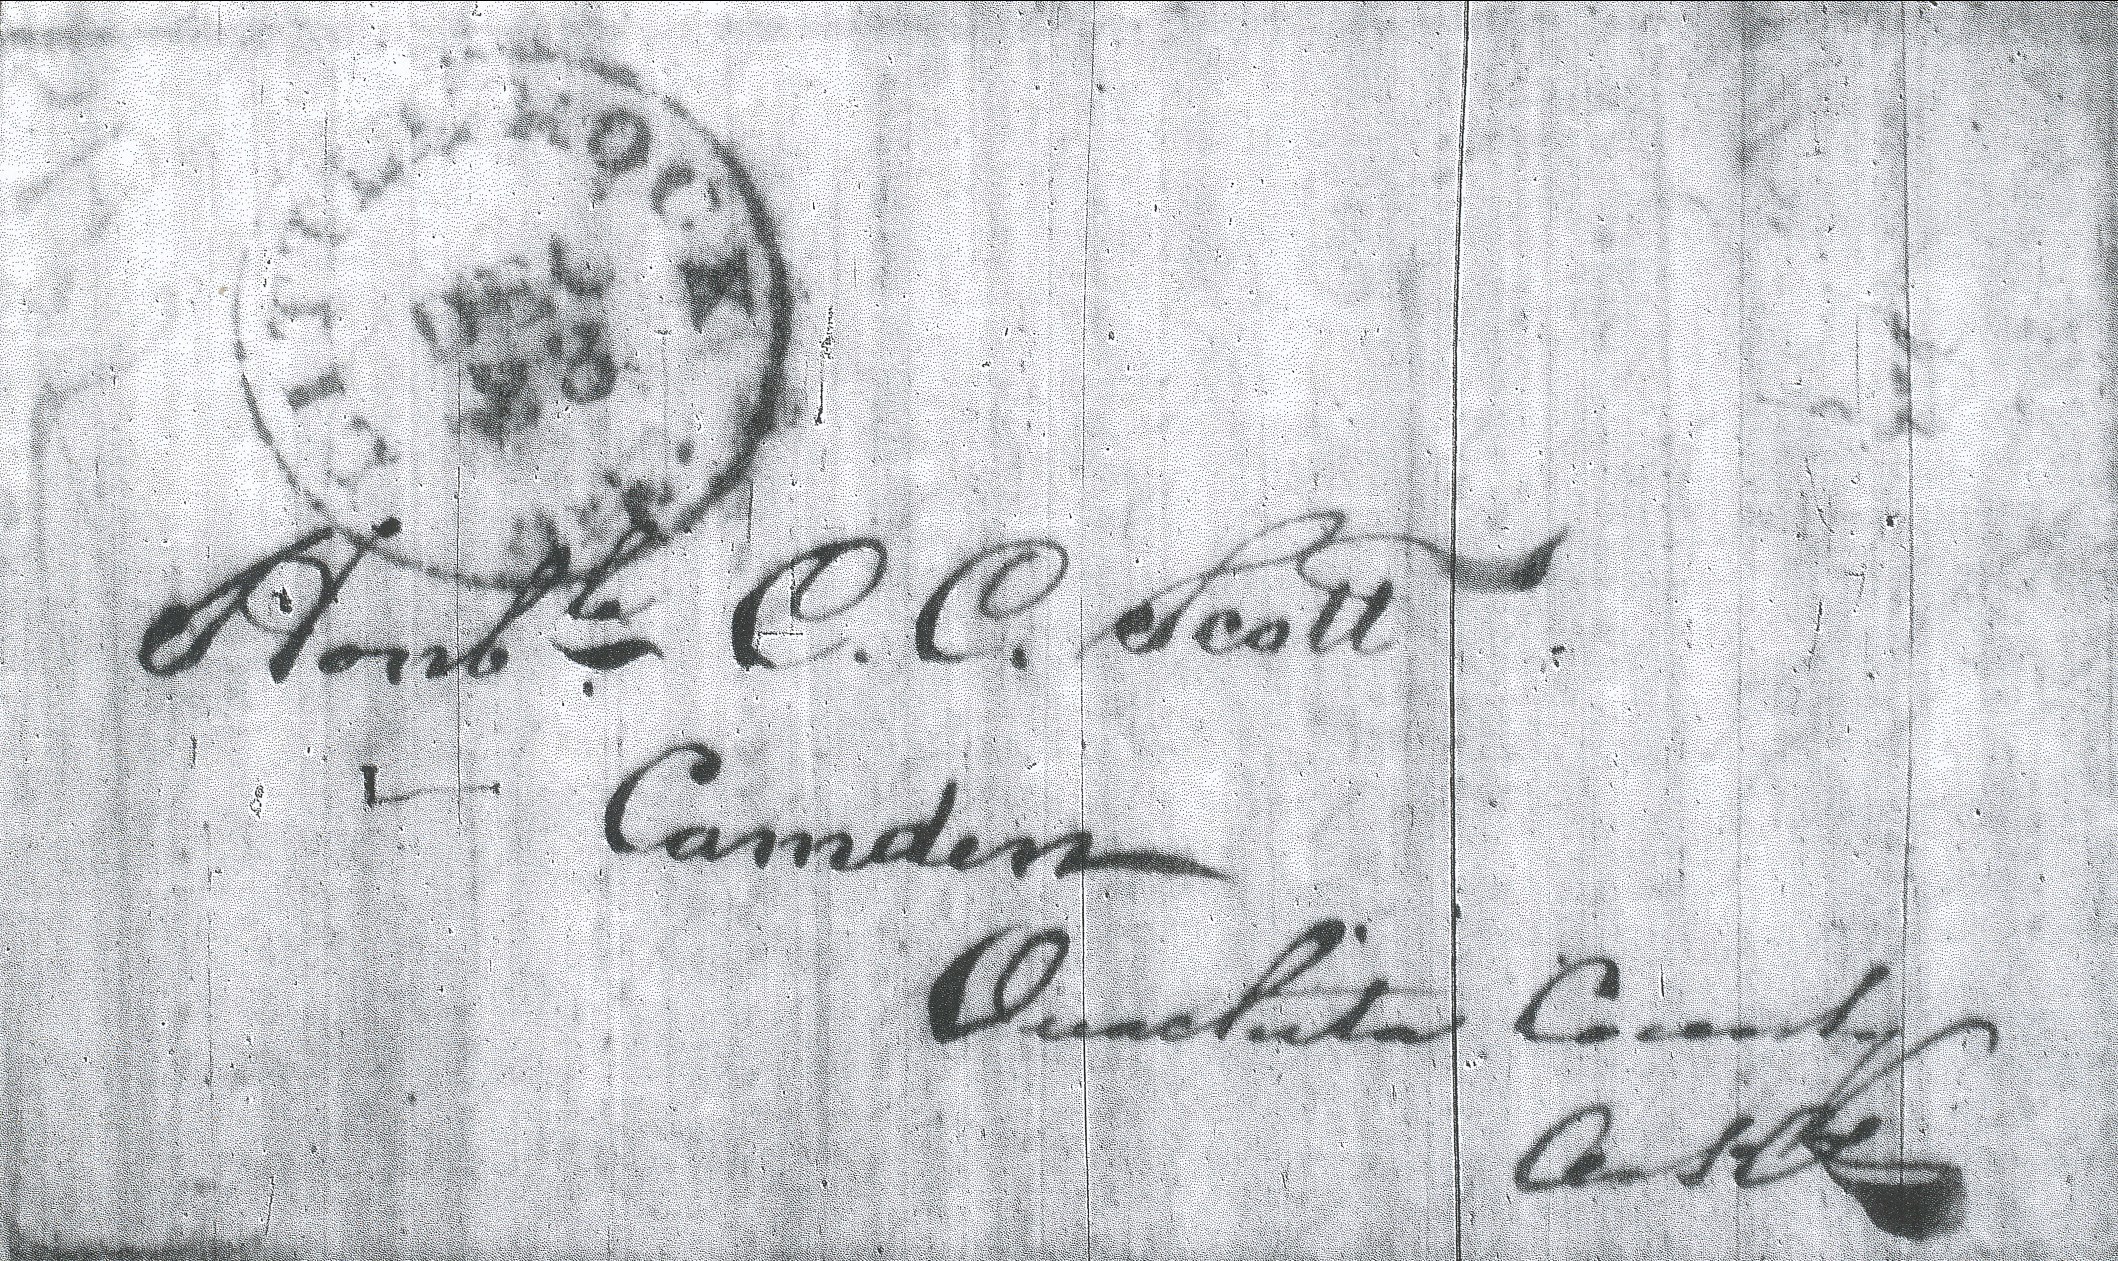 LITTLE ROCK
Honble C. C. Scott
Camden
Ouachita County
Arks